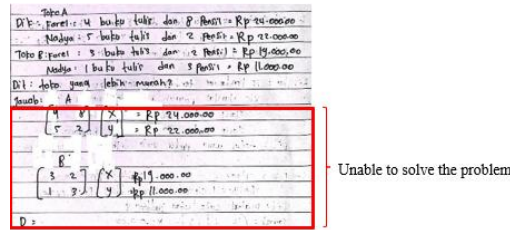 Toko A
Dik : Farel : 4 buku tulis dan 8 Pensil = Rp 24.000.00
Nadya : 5 buku tulis dan 2 Pensil = Rp 22.000.00
Toko B : Farel : 3 buku tulis dan 2 Pensil = Rp 19.000,00
Nadya : 1 buku tulis dan 3 Pensil = Rp 11.000.00
Dit : toko yang lebih murah?
Jawab : A
[4 8] [x] = Rp 24.000.00
[5 2] [y] = Rp 22.000,00
B
[3 2] [x] Rp 19.000.00
[1 3] [y] = Rp 11.000.00
D =
Unable to solve the problem